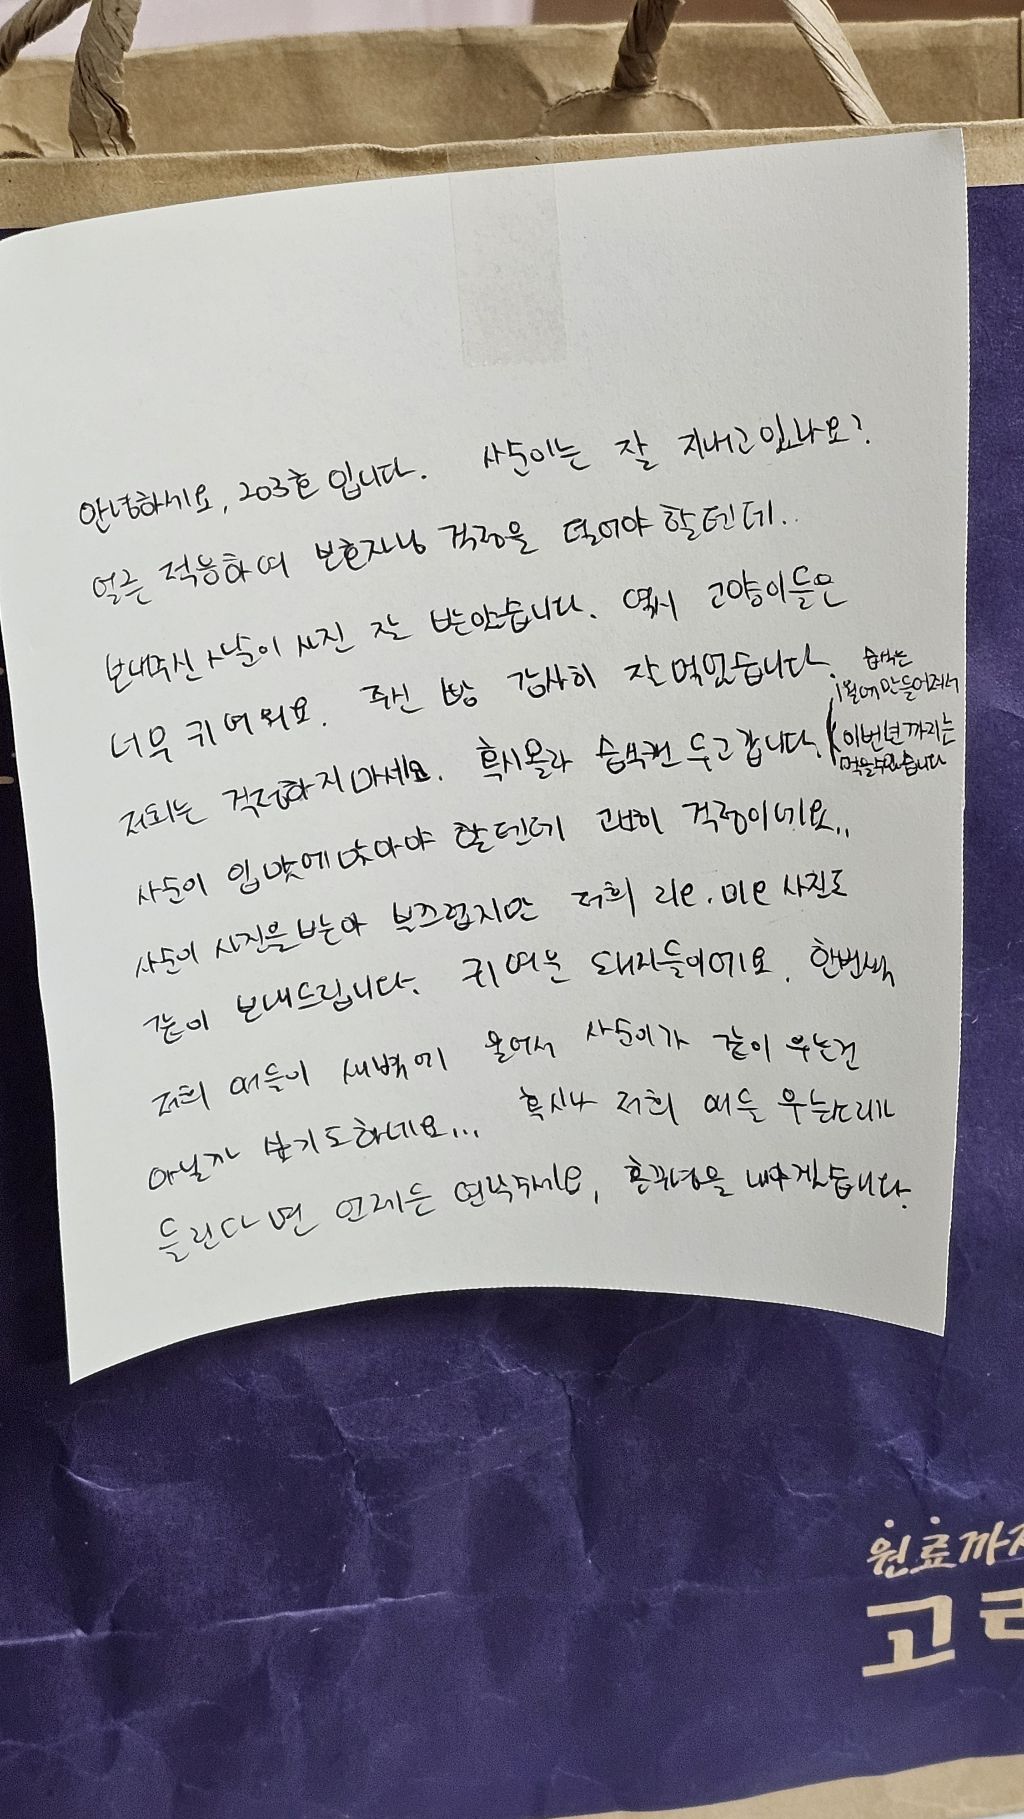 안녕하세요, 203호 입니다. 사순이는 잘 지내고있나요?
얼른 적응하여 보호자님 걱정을 덜어야 할텐데..
보내주신 사순이 사진 잘 받았습니다. 역시 고양이들은
너무 귀여워요. 주신 빵 감사히 잘 먹었습니다.
저희는 걱정하지마세요. 혹시몰라 숨숨캔 두고갑니다.
1월에만들어져서
이번년까지는
먹을수있습니다
사순이 입맛에 맞아야 할텐데 괜히 걱정이네요..
사순이 사진을 받아 부끄럽지만 저희 리온, 미온 사진도
같이 보내드립니다. 귀여운 돼지들이에요. 한번씩
저희 애들이 새벽에 울어서 사순이가 같이 우는건
아닐까 싶기도하네요... 혹시나 저희 애들 우는소리가
들린다면 언제든 연락주세요, 혼꾸녕을 내주겠습니다.
원료까지
고